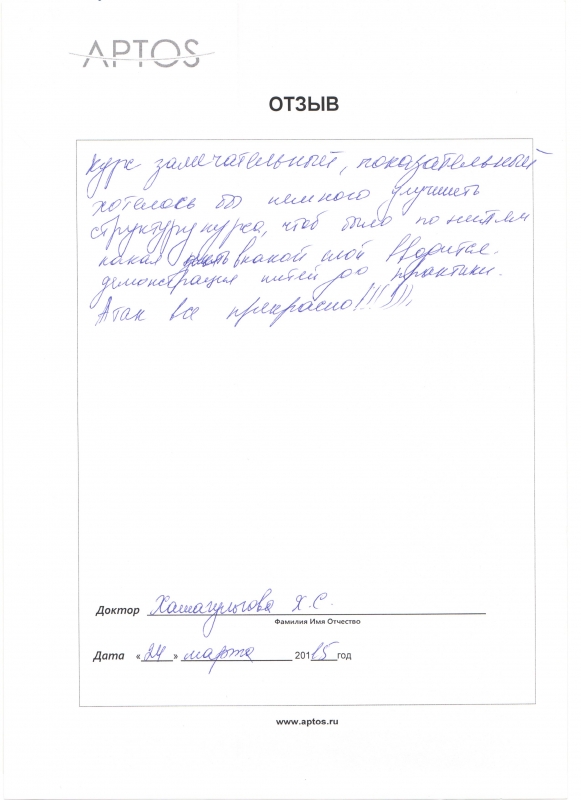 APTOS
ОТЗЫВ
Курс замечательный, показательный
хотелось бы немного улучшить
структуру курса, чтоб было по нитям
какая в какой слой вводится.
демонстрация нитей до практики.
А так все прекрасно!!!)))
Доктор Хашагульгова Х.С.
Фамилия Имя Отчество
Дата «24» марта 2015 год
www.aptos.ru